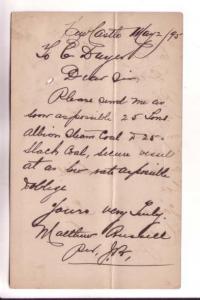 NewCastle May 2/95
H C Dwyer
Dear Sir
Please send me as
soon as possible 25 Tons
Albion Steam Coal & 25
Slack Coal, secure vessel
at as low rate as possible
& oblige
Yours very truly.
Matthew Russell
Per. J.R.